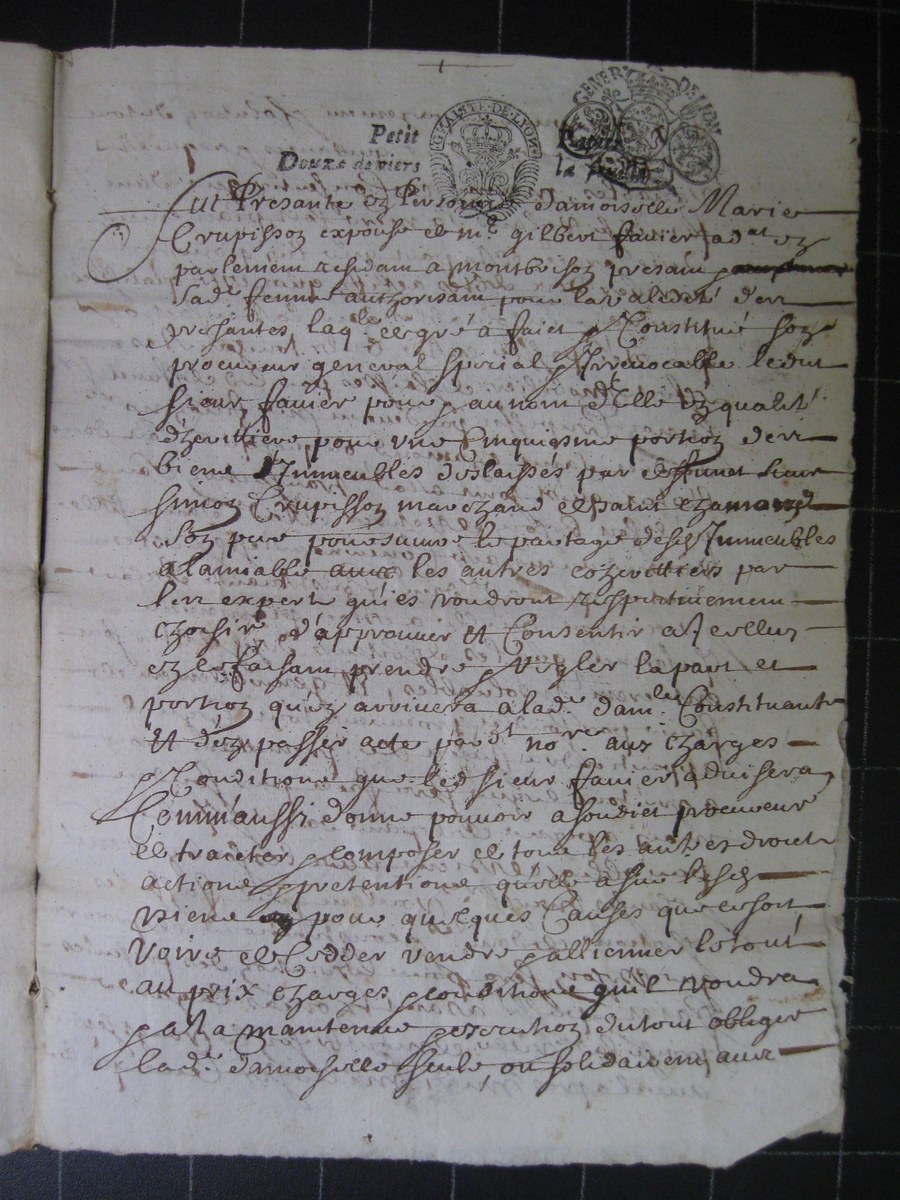 GENER DE LYON
G[...]TE DE LYON
Petit Papier
Douze deniers la feuille
Fut Presante en Personne damoiselle Marie
Crupisson expouse de me gilbert favier adat en
parlement residant a montbrison presant
lad. femme authorisant pour la validité des
presantes, laqle de gré a faict & Constitué son
procureur general special & Irrevocable ledit
sieur favier pour & au nom delle En qualité
dheritiere pour une Cinquiesme portion des
biens & Immeubles deslaissés par deffunct sieur
simon Crupisson marchand de saint chamond
son pere poursuivre le partage desd Immeubles
alamiable avec les autres coheritiers par
les expertz quies voudront respectivement
choisir, d'approuver et Consentir a Icelluy
en le faisant prendre & Regler la part et
portion quen arrivera a lade damle Constituante
Et d'en passer acte pardt nore aux charges
& Conditions que led sieur favier advisera
Comm'aussi donne pouvoir a sondict procureur
de traicter & composer de tous les autres droictz
actions & pretentions quelle a sur lesd
biens pour quelques Causes que ce soit
voire de Cedder vendre & allienner le tout
au prix charges & conditions quil voudra
& a la maintenue & execution dutout obliger
lade damoiselle seule ou solidairement avec